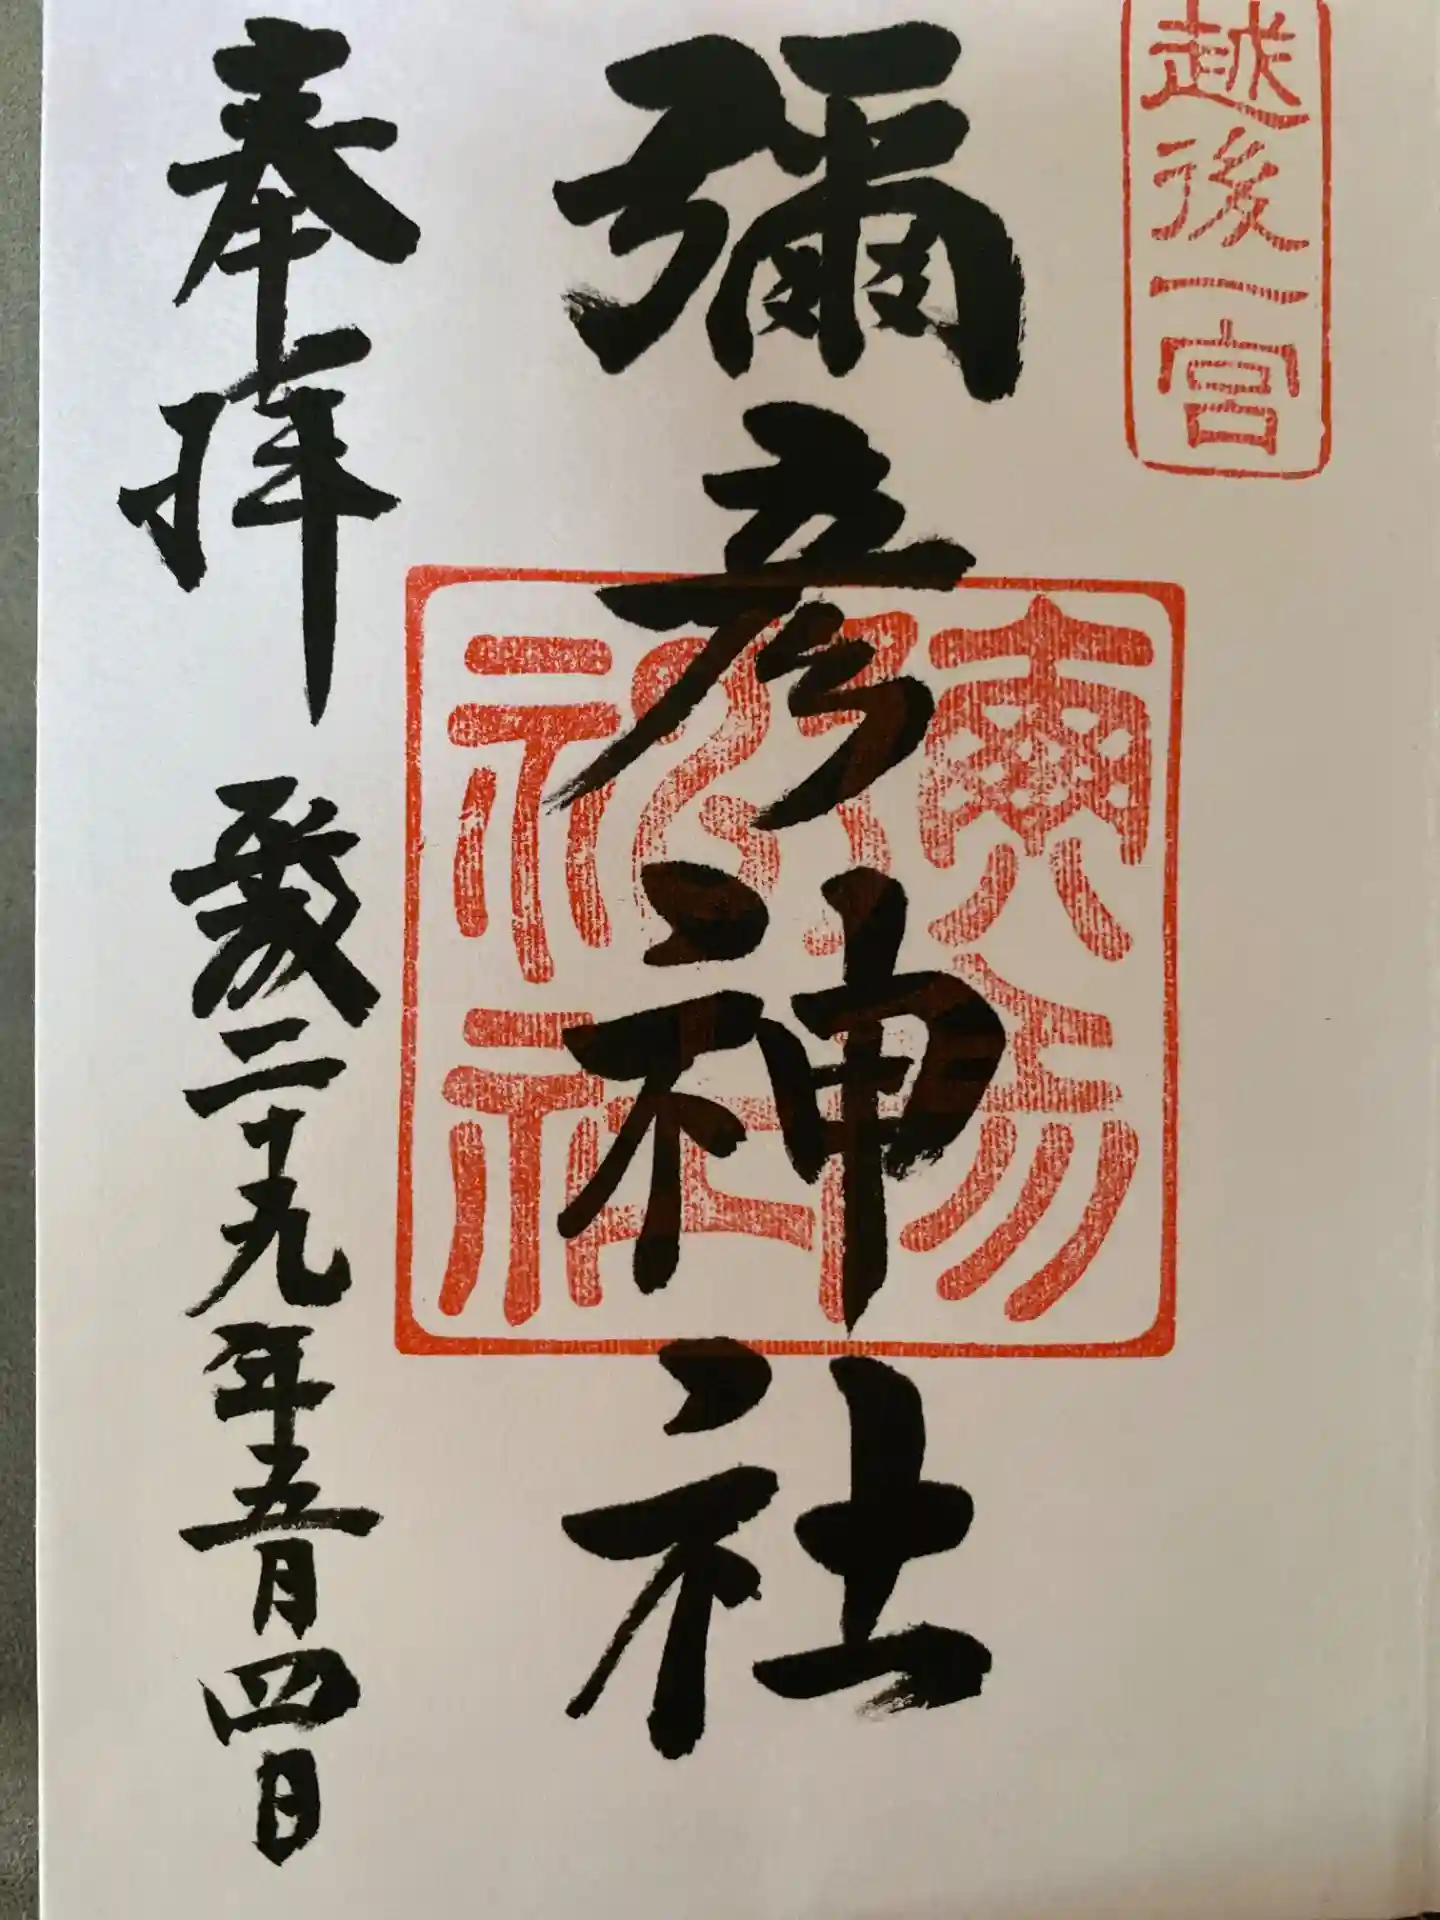 越後一宮
彌彦神社
彌彦
神社
奉拝 二十九年五月四日